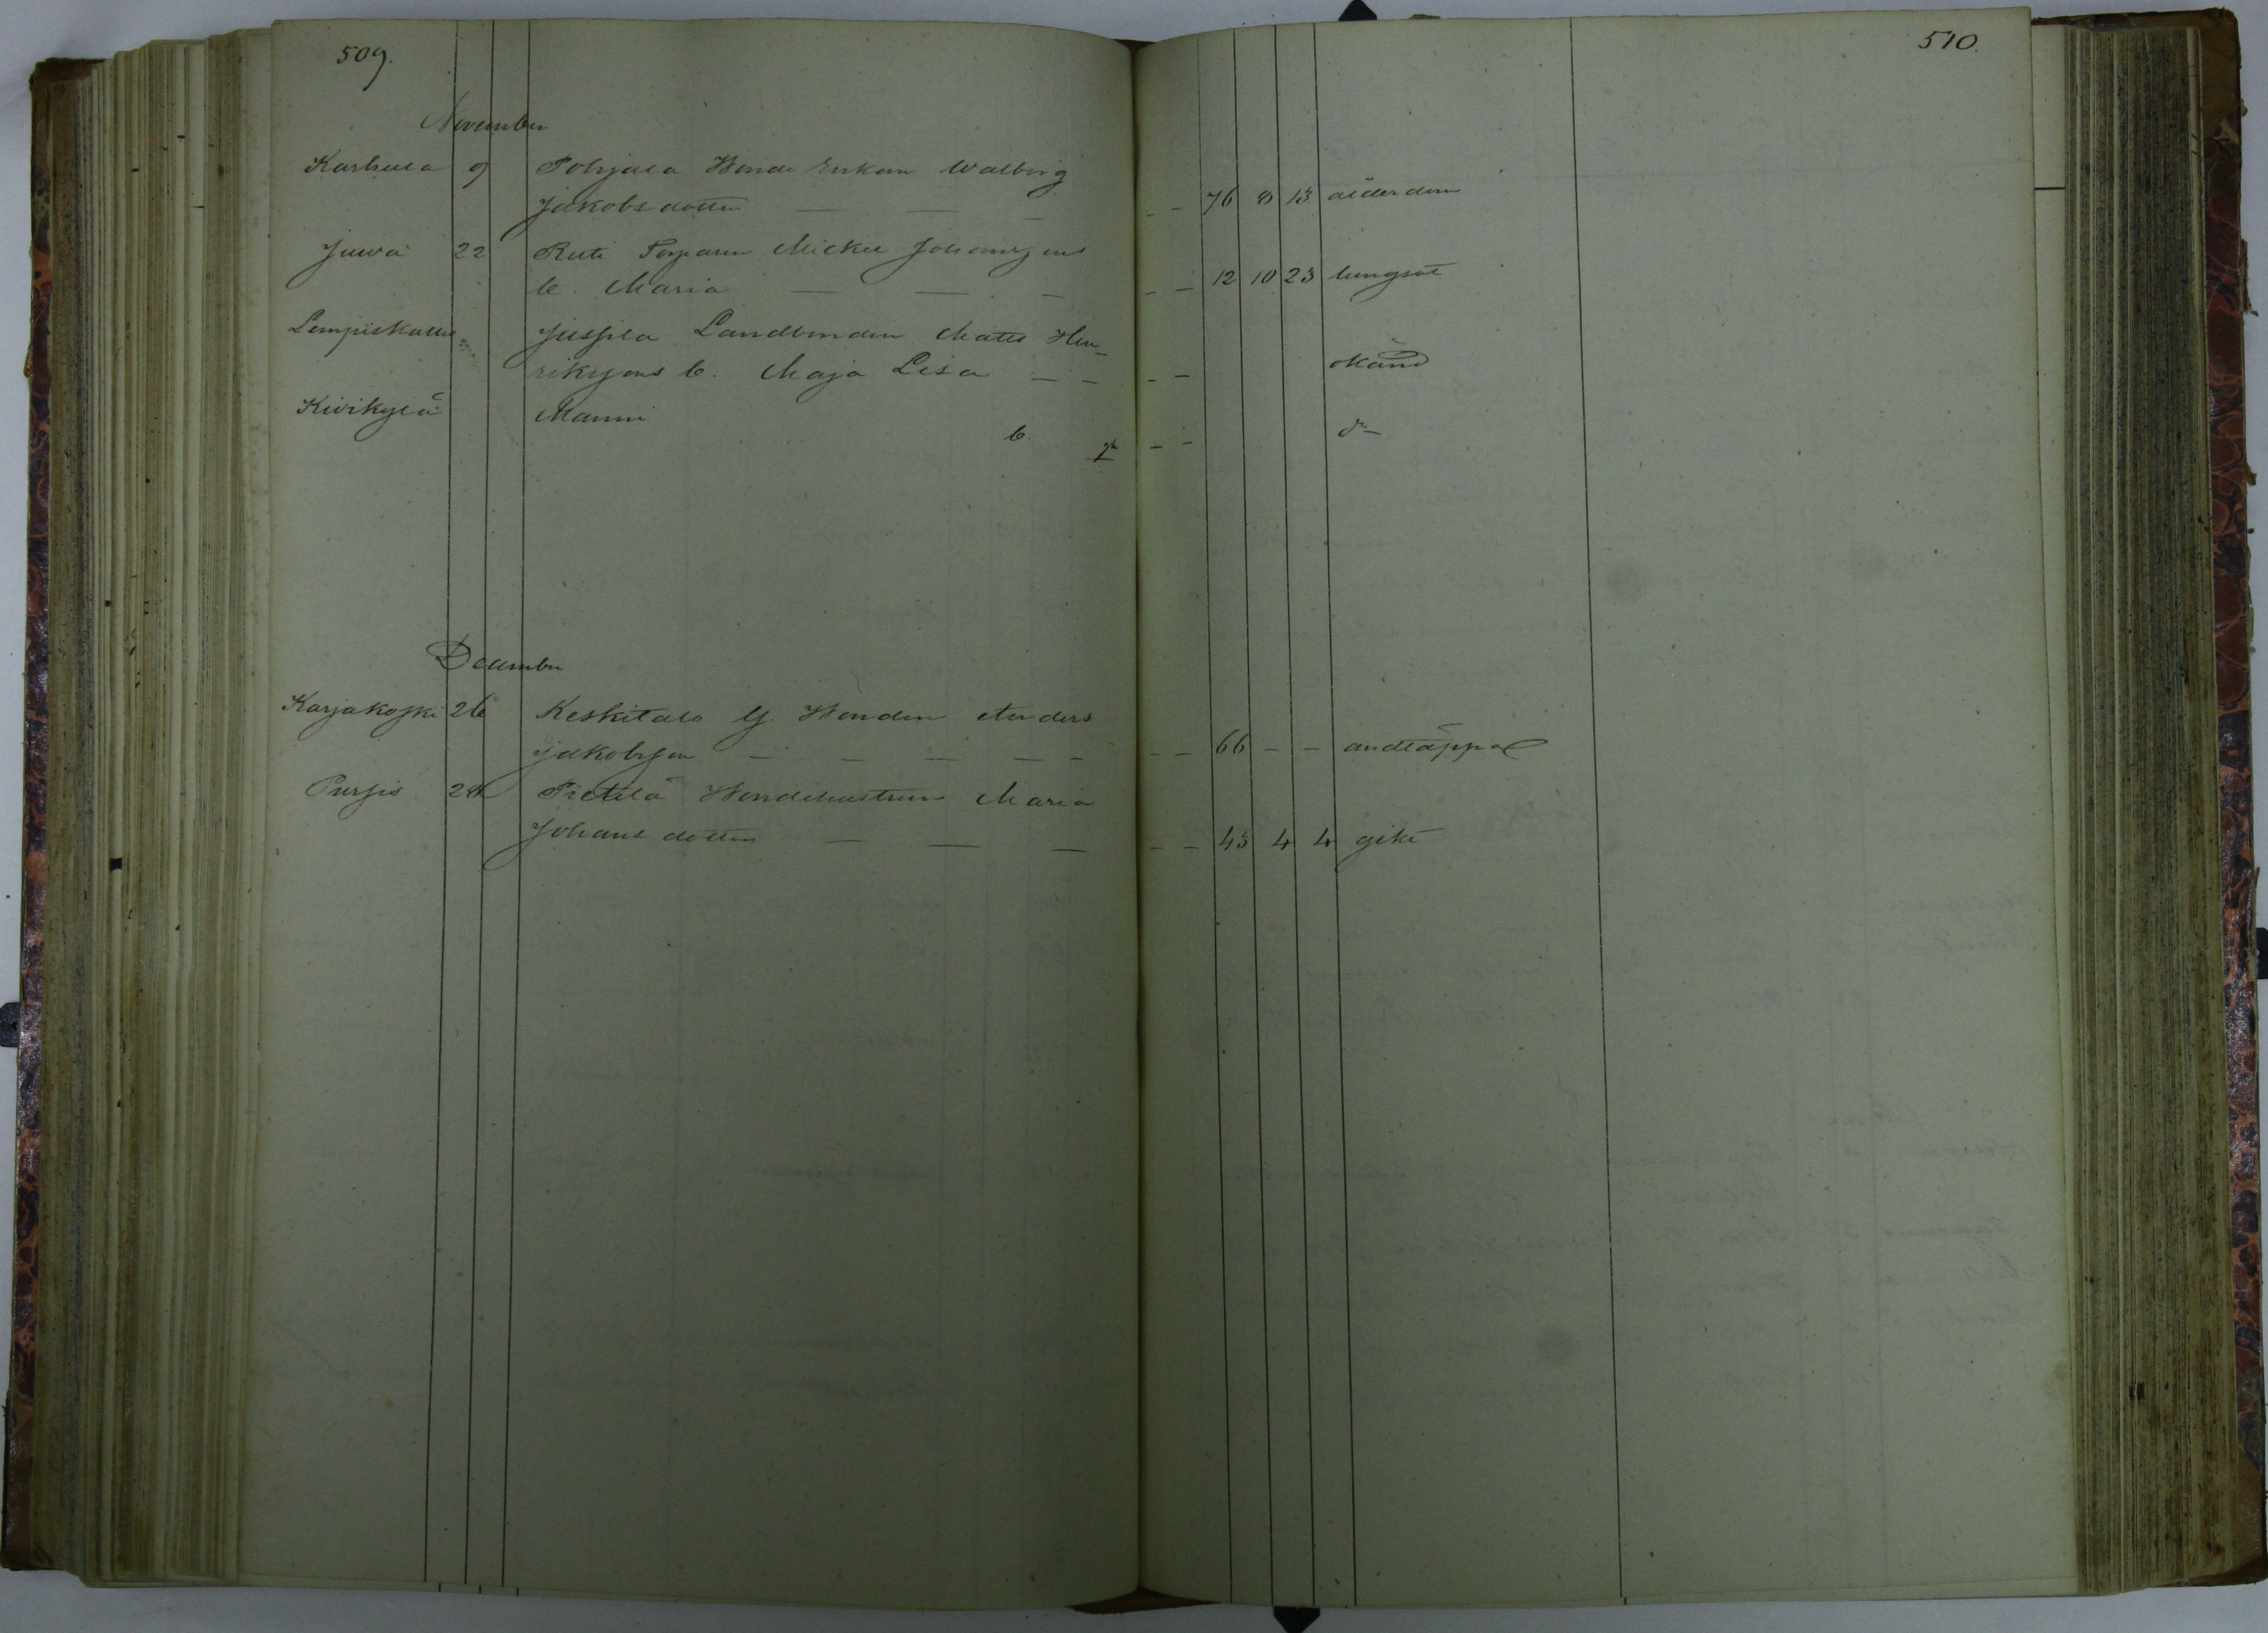 509.
510.
November
Karhula 9 Pohjala Bonde Enkan Walborg
Jakobsdotter — — — - - 76 8 13 ålderdom
Juva 22 Torparen Mickel Johanssons
b. Maria — — — - - 12 10 23 lungsot
Jussila Landbonden Matts Hen-
rikssons b. Maja Lisa - - - - okänd
Kivikylä Manni
b. - - do
December
Karjakoski 26 Keskitalo G. Bonden Anders
Jakobsson — — — — - - - 66 - - andtäppa
Pursis 28 Pietilä Bondehustrun Maria
Johansdotter — — — - - 43 4 4 gikt